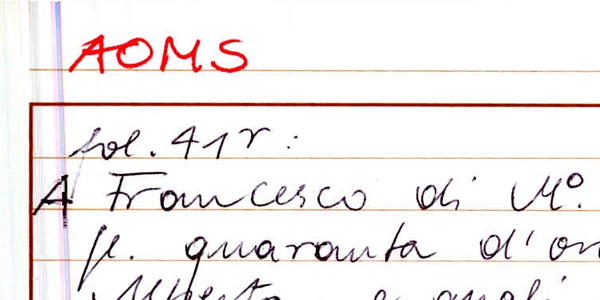 AOMS
fol. 41r:
A Francesco di M°.
fl. quaranta d'or
Alberto